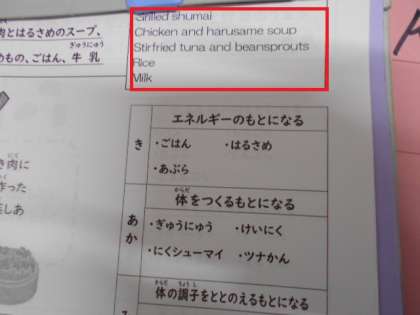 Grilled shumai
肉とはるさめのスープ、 Chicken and harusame soup
Stirfried tuna and beansprouts
めもの、ごはん、牛乳 Rice
ぎゅうにゅう
Milk
エネルギーのもとになる
き
・ごはん ・はるさめ
・あぶら
体をつくるもとになる
からだ
あか
・ぎゅうにゅう ・けいにく
・にくシューマイ ・ツナかん
体の調子をととのえるもとになる
からだ ちょうし
肉に
にく
作った
つく